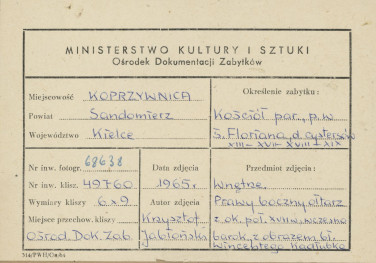 MINISTERSTWO KULTURY I SZTUKI
Ośrodek Dokumentacji Zabytków
Miejscowość KOPRZYWNICA
Powiat Sandomierz
Województwo Kielce
Określenie zabytku:
Kościół par., p.w
ś. Floriana, d. cystersów
XIII-XVII-XVIII-XIX
Nr inw. fotogr. 68638
Nr inw. klisz. 49760
Wymiary kliszy 6x9
Miejsce przechow. kliszy
Ośrod. Dok. Zab.
Data zdjęcia
1965 r.
Autor zdjęcia
Krzysztof
Jabłoński
Przedmiot zdjęcia:
Wnętrze.
Prawy boczny ołtarz
z ok. poł. XVII w. wczesno
barok z obrazem bł.
Wincentego Kadłubka